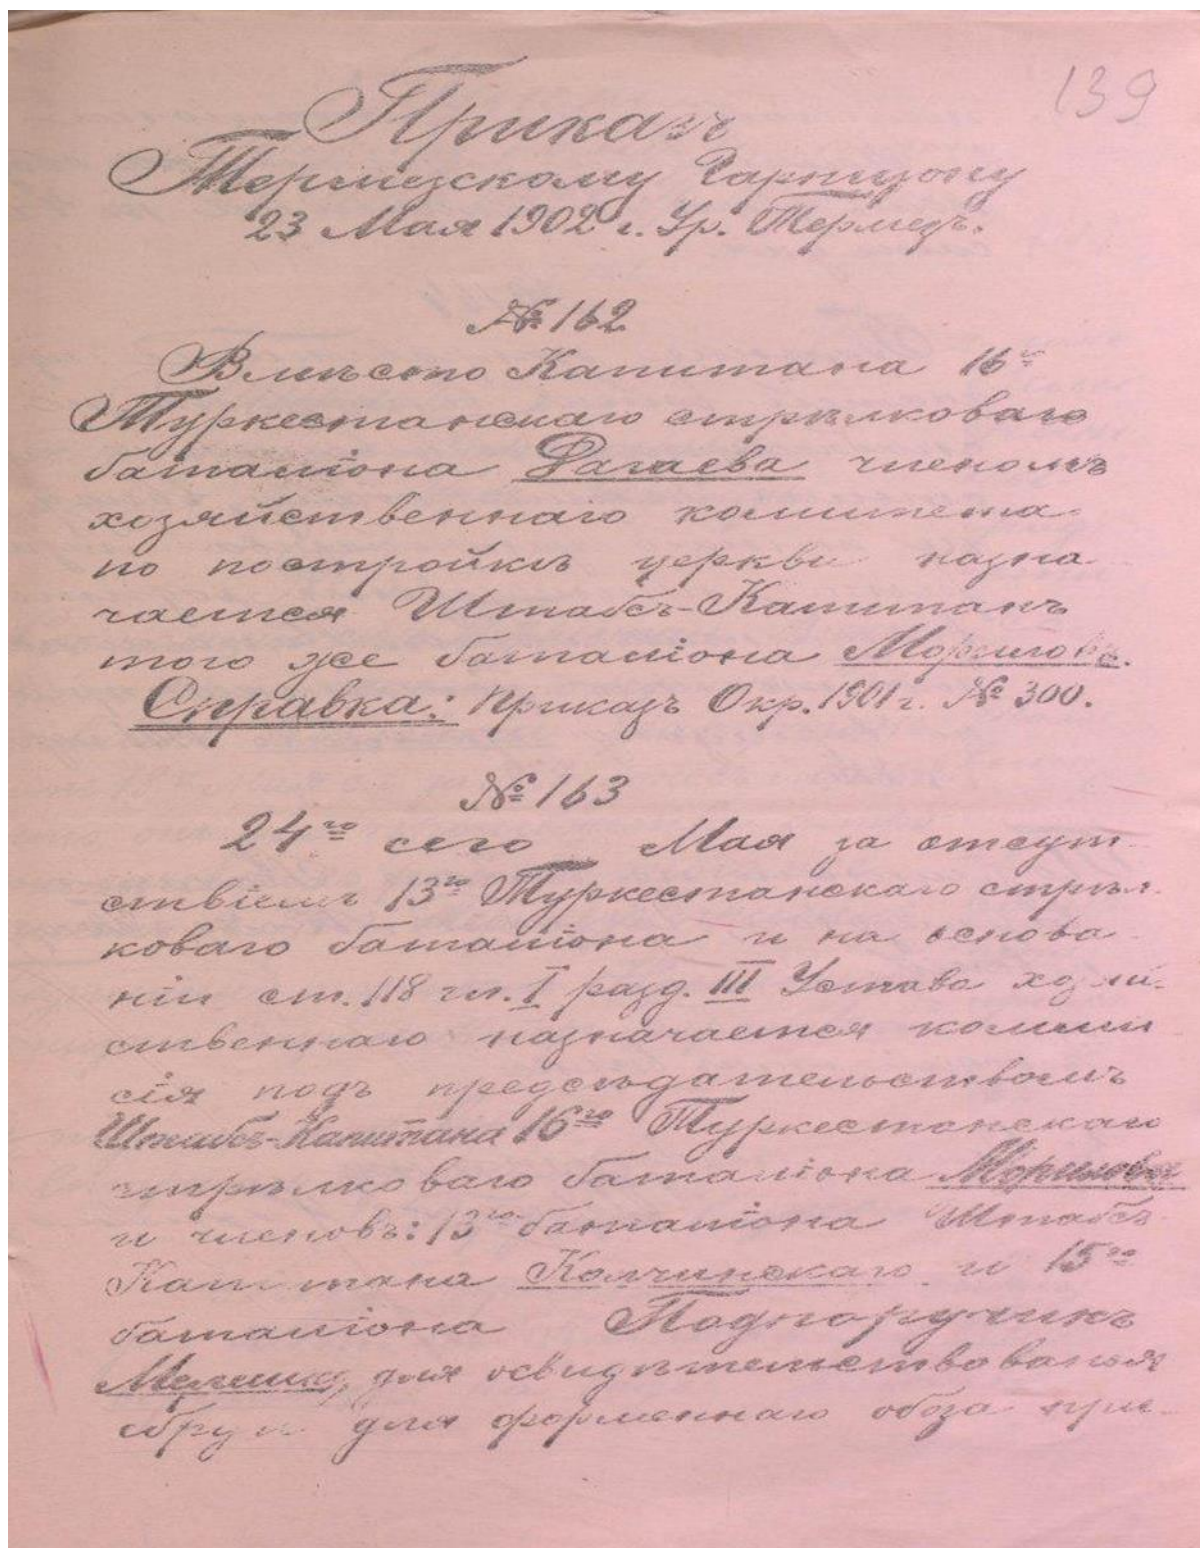 139
Приказъ
Термезскому Гарнизону
23 Мая 1902 г. Ур. Термезъ.
№ 162
Вмѣсто Капитана 16го
Туркестанскаго стрѣлковаго
баталіона Дагаева членомъ
хозяйственнаго комитета
по постройкѣ церкви назна
чается Штабсъ-Капитанъ
того же баталіона
Справка: Приказъ Окр. 1901 г. № 300.
№ 163
24го сего Мая за отсут
ствіемъ 13го Туркестанскаго стрѣл
коваго баталіона и на основа
ніи ст. 118 гл. I разд. III Устава хозяй
ственнаго назначается комми
сія подъ предсѣдательствомъ
Штабсъ-Капитана 16го Туркестанскаго
стрѣлковаго баталіона
и членовъ: 13го баталіона Штабсъ
Капитана Колчинскаго и 15го
баталіона Подпоручикъ
для освидѣтельствованія
сбруи для форменнаго обоза при